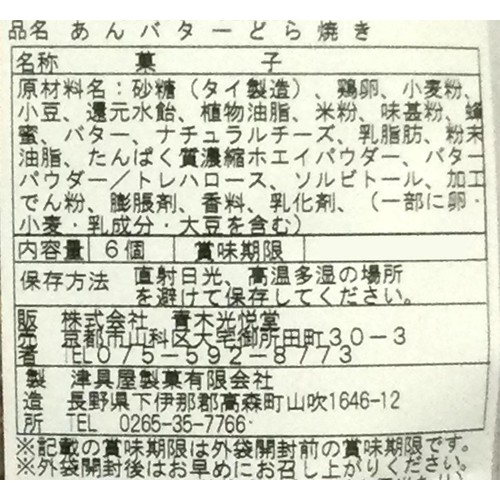 品名 あんバターどら焼き
名称 菓 子
原材料名：砂糖（タイ製造）、鶏卵、小麦粉、
小豆、還元水飴、植物油脂、米粉、味甚粉、蜂
蜜、バター、ナチュラルチーズ、乳脂肪、粉末
油脂、たんぱく質濃縮ホエイパウダー、バター
パウダー／トレハロース、ソルビトール、加工
でん粉、膨脹剤、香料、乳化剤、（一部に卵・
小麦・乳成分・大豆を含む）
内容量 6個 賞味期限
保存方法 直射日光、高温多湿の場所
を避けて保存してください。
販 株式会社 青木光悦堂
売 京都市山科区大宅御所田町30-3
者 TEL075-592-8773
製 津具屋製菓有限会社
造 長野県下伊那郡高森町山吹1646-12
所 TEL 0265-35-7766
※記載の賞味期限は外袋開封前の賞味期限です。
※外袋開封後はお早めにお召し上がりください。